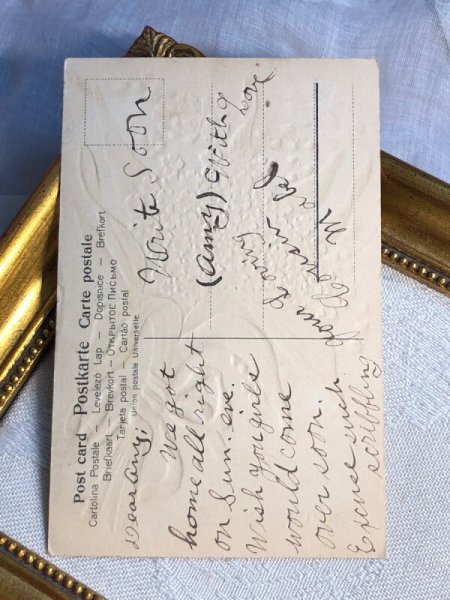 Post card Postkarte Carte postale
Cartolina Postale – Levelező Lap – Dopisnice – Brefkort
Briefkaart – Brevkort – Открытое Письмо
Tarjeta postal – Cartão postal
Union postale Universelle
Dear amy;
We got
home all right
on Sun. eve.
Wish you girls
would come
over soon.
Excuse such
scribbling
Write Soon
(Amy) With
love